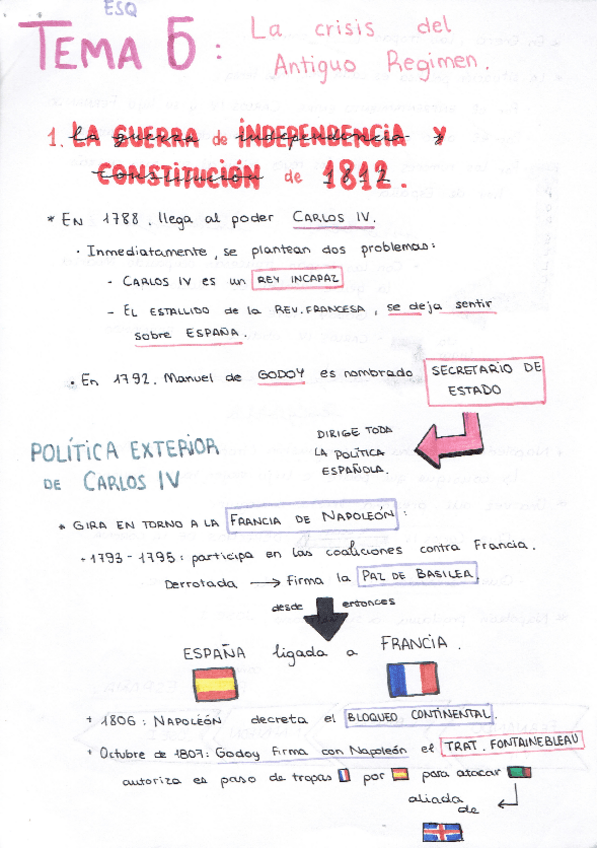 ESQ
TEMA 5: La crisis del
Antiguo Regimen.
1. LA GUERRA de INDEPENDENCIA Y
CONSTITUCIÓN de 1812.
* EN 1788. llega al poder CARLOS IV.
· Inmediatamente, se plantean dos problemas:
- CARLOS IV es un REY INCAPAZ
- EL ESTALLIDO de la REV. FRANCESA, se deja sentir
sobre ESPAÑA.
· En 1792. Manuel de GODOY es nombrado SECRETARIO DE
ESTADO
DIRIGE TODA
LA POLÍTICA
ESPAÑOLA.
POLÍTICA EXTERIOR
DE CARLOS IV
* GIRA EN TORNO A LA FRANCIA DE NAPOLEÓN:
+ 1793-1795: participa en las coaliciones contra Francia.
Derrotada → firma la PAZ DE BASILEA
desde entonces
ESPAÑA ligada a FRANCIA.
+ 1806: NAPOLEÓN decreta el BLOQUEO CONTINENTAL.
+ Octubre de 1807: Godoy firma con Napoleón el TRAT. FONTAINEBLEAU
autoriza es paso de tropas por para atacar
aliada
de